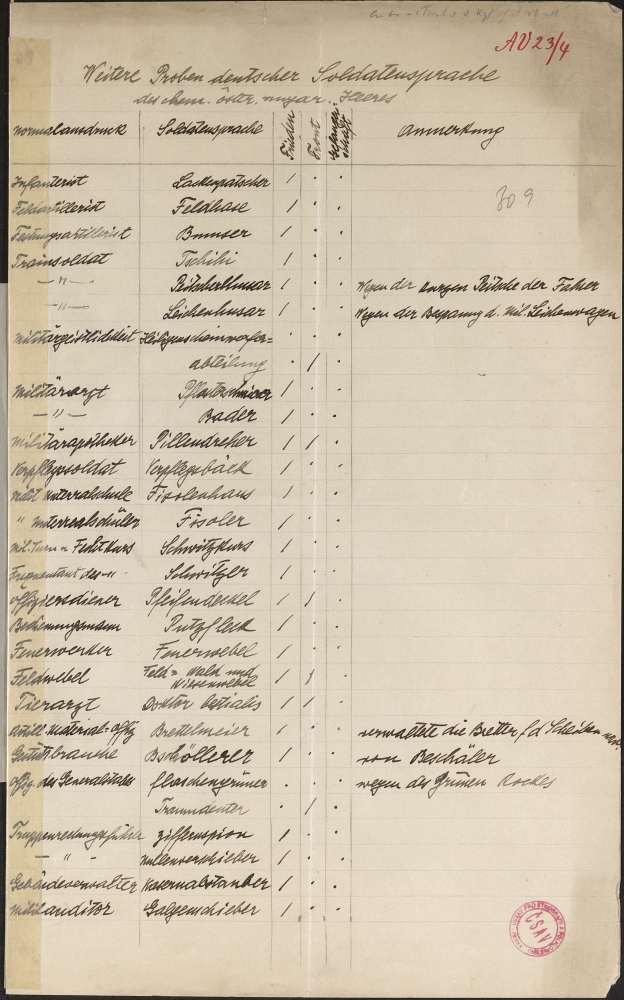 AV 23/4
Weitere Proben deutscher Soldatensprache
des ehem. österr. ungar. Heeres
Normalausdruck Soldatensprache Frieden Front Gefangenschaft Anmerkung
309
Infanterist Lackenpatscher / . .
Feldartillerist Feldhase / . .
Festungsartillerist Bumser / . .
Trainsoldat Tschihi / . .
— " — Peitscherlhusar / . . wegen der kurzen Peitsche der Fahrer
— " — Leichenhusar / . . wegen der Bespanung d. Mil. Leichenwagen
Militärgeistlichkeit Heiligenscheinwerfer=
abteilung . / .
Militärarzt Pflasterschmierer / . .
— " — Bader / . .
Militärapotheker Pillendreher / / .
Verpflegssoldat Verpflegsbäck / . .
Milit. Unterrealschule Fisolenhaus / . .
" Unterrealschüler Fisoler / . .
Mil. Turn u Fechtkurs Schwitzkurs / . .
Frequentant des - " - Schwitzer / . .
Offiziersdiener Pfeifendeckel / / .
Bedienungsmann Putzfleck / . .
Feuerwerker Feuerwebel / . .
Feldwebel Feld= Wald und
Wiesenwebel / / .
Tierarzt Doktor bestialis / / .
Artill. Material=Offiz Brettelmeier / . . verwaltete die Bretter f. d. Scheiben
Gestütsbranche Bschöllerer / . . von Beschäler
Offiz. des Generalstabes flaschengrüner . . . wegen des Grünen Rockes
Traumdeuter . / .
Truppenrechnungsführer Ziffernspion / . .
— " — Nullenverschieber / . .
Gebäudeverwalter Kasernabstauber / . .
Milit. auditor Galgenschieber / . .
ČSAV